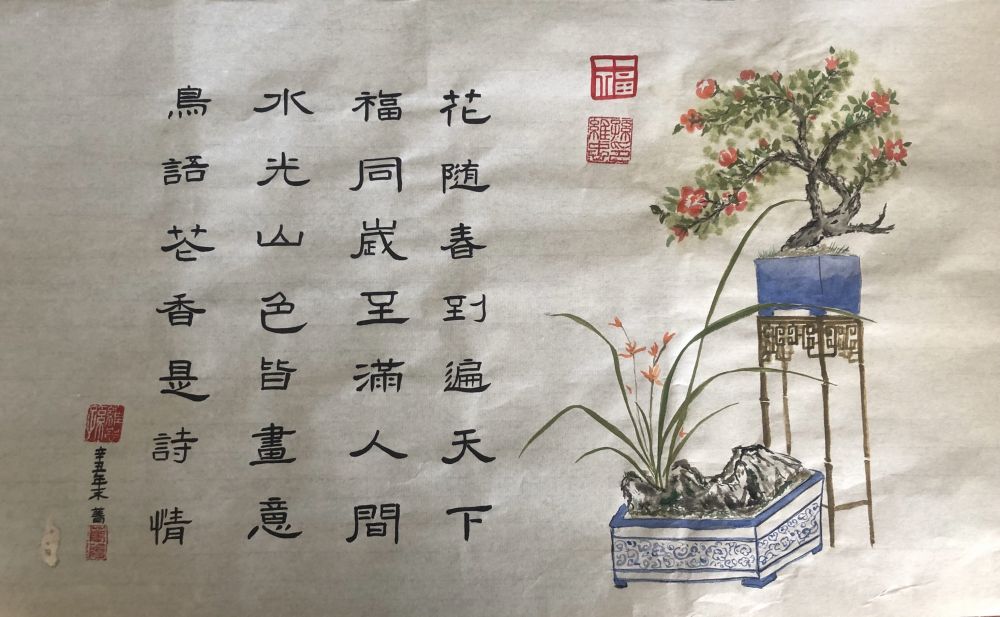 福
花随春到遍天下
福同歲至滿人間
水光山色皆畫意
鳥語花香是詩情
辛丑年末